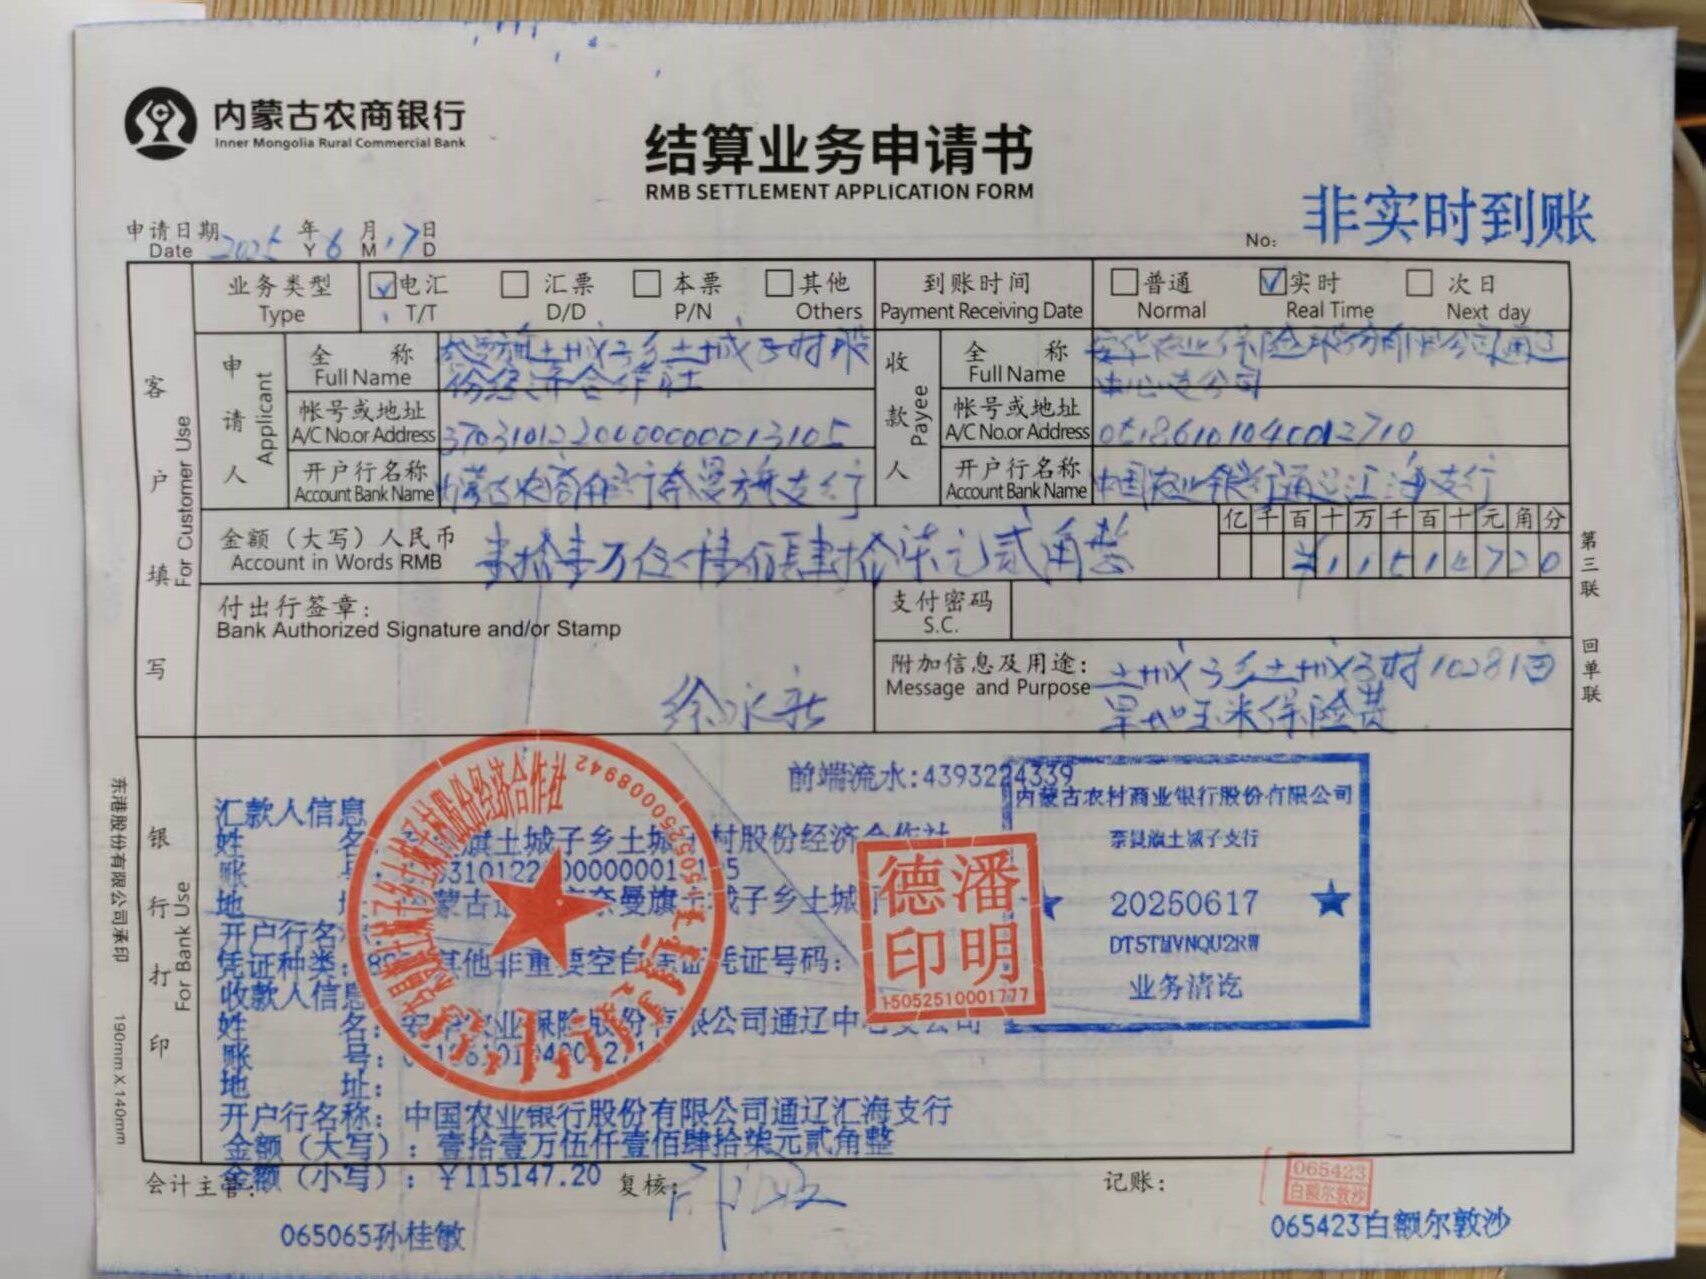 内蒙古农商银行
Inner Mongolia Rural Commercial Bank
结算业务申请书
RMB SETTLEMENT APPLICATION FORM
非实时到账
申请日期 2025 年 6 月 17 日
Date Y M D
No:
业务类型 电汇 汇票 本票 其他 到账时间 普通 实时 次日
Type T/T D/D P/N Others Payment Receiving Date Normal Real Time Next day
客户填写
For Customer Use
申请人
Applicant
全称 奈曼旗土城子乡土城子村股
Full Name 份经济合作社
帐号或地址
A/C No.or Address 3703101220000000013105
开户行名称
Account Bank Name 内蒙古农商银行奈曼旗支行
收款人
Payee
全称 安华农业保险股份有限公司通辽
Full Name 中心支公司
帐号或地址
A/C No.or Address 05186101040012710
开户行名称
Account Bank Name 中国农业银行通辽汇海支行
金额（大写）人民币
Account in Words RMB
亿千百十万千百十元角分
付出行签章：
Bank Authorized Signature and/or Stamp
徐永
支付密码
S.C.
附加信息及用途： 土城子乡土城子村10281亩
Message and Purpose 旱地玉米保险费
第三联 回单联
银行打印
For Bank Use
前端流水:4393224339
汇款人信息
姓名: 旗土城子乡土城 村股份经济合作社
账号:
地
开户行名
凭证种类: 其他非重要空白凭证 凭证号码:
收款人信息
姓名: 安华农业保险股份有限公司通辽中心支公司
账号:
地址:
开户行名称: 中国农业银行股份有限公司通辽汇海支行
金额（大写）: 壹拾壹万伍仟壹佰肆拾柒元贰角整
金额（小写）: ￥115147.20
股份经济合作社
1505250008942
潘明德印
15052510001777
内蒙古农村商业银行股份有限公司
奈曼旗土城子支行
20250617
DT5TMVNQU2RW
业务清讫
会计主管:
复核:
记账:
065423
白额尔敦沙
065065孙桂敏
065423白额尔敦沙
东港股份有限公司承印 190mm X 140mm